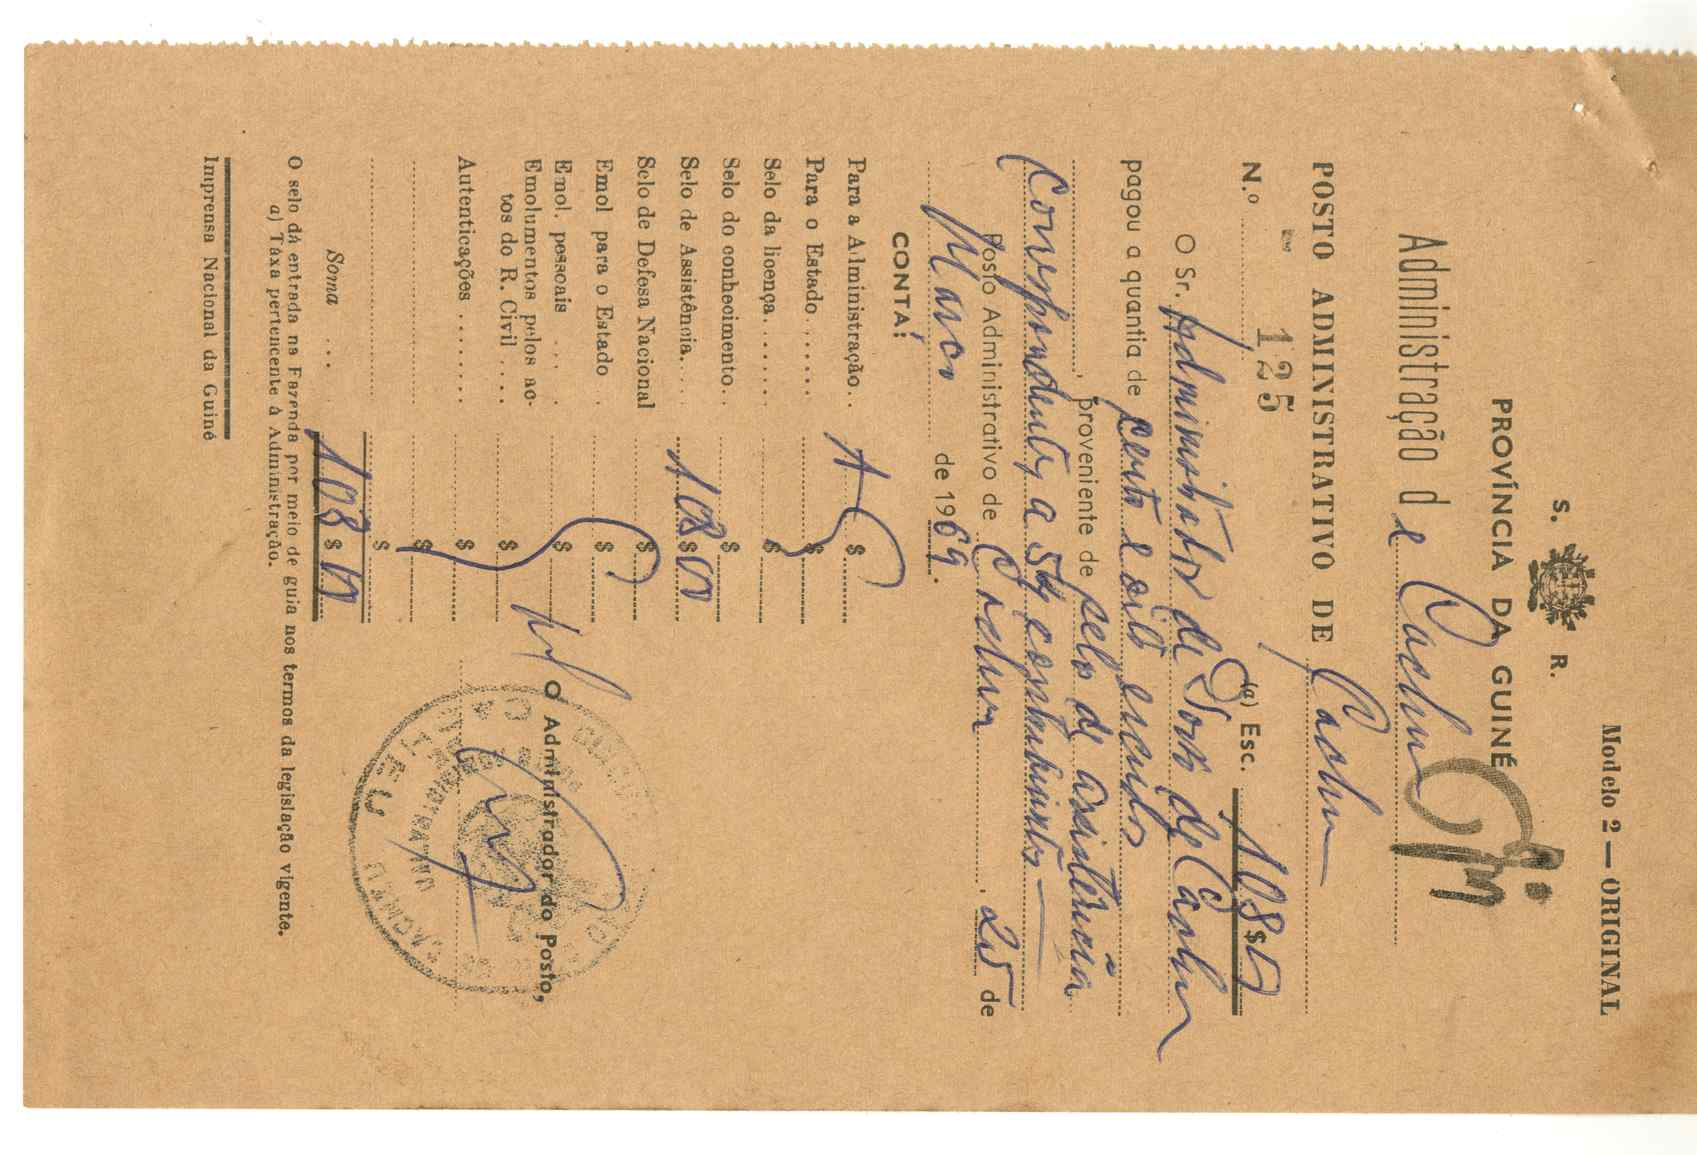 Modelo 2 — ORIGINAL
S. R.
PROVÍNCIA DA GUINÉ
Administração de Cacheu
POSTO ADMINISTRATIVO DE Cacheu
N.º 125 (a) Esc. 108$00
O Sr. Administrador de Posto de Cacheu
pagou a quantia de cento e oito escudos
proveniente de selo de assistência
correspondente a 54 contribuintes
Posto Administrativo de Cacheu, 25 de
Março de 1969.
CONTA:
Para a Administração.. $
Para o Estado....... $
Selo da licença....... $
Selo do conhecimento.. $
Selo de Assistência.... 108$00
Selo de Defesa Nacional $
Emol para o Estado . $
Emol. pessoais .... . $
Emolumentos pelos ac-
tos do R. Civil .... $
Autenticações ........ $
$
$
Soma .... 108$00
O Administrador do Posto,
O selo dá entrada na Fazenda por meio de guia nos termos da legislação vigente.
a) Taxa pertencente à Administração.
Imprensa Nacional da Guiné